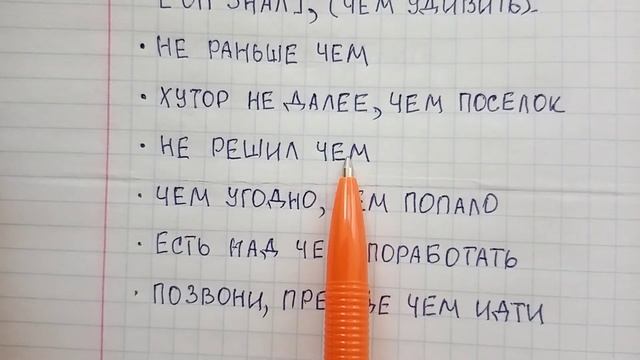 [ОН ЗНАЛ], (ЧЕМ УДИВИТЬ).
• НЕ РАНЬШЕ ЧЕМ
• ХУТОР НЕ ДАЛЕЕ, ЧЕМ ПОСЕЛОК
• НЕ РЕШИЛ ЧЕМ
• ЧЕМ УГОДНО, ЧЕМ ПОПАЛО
• ЕСТЬ НАД ЧЕМ ПОРАБОТАТЬ
• ПОЗВОНИ, ПРЕЖДЕ ЧЕМ ИДТИ